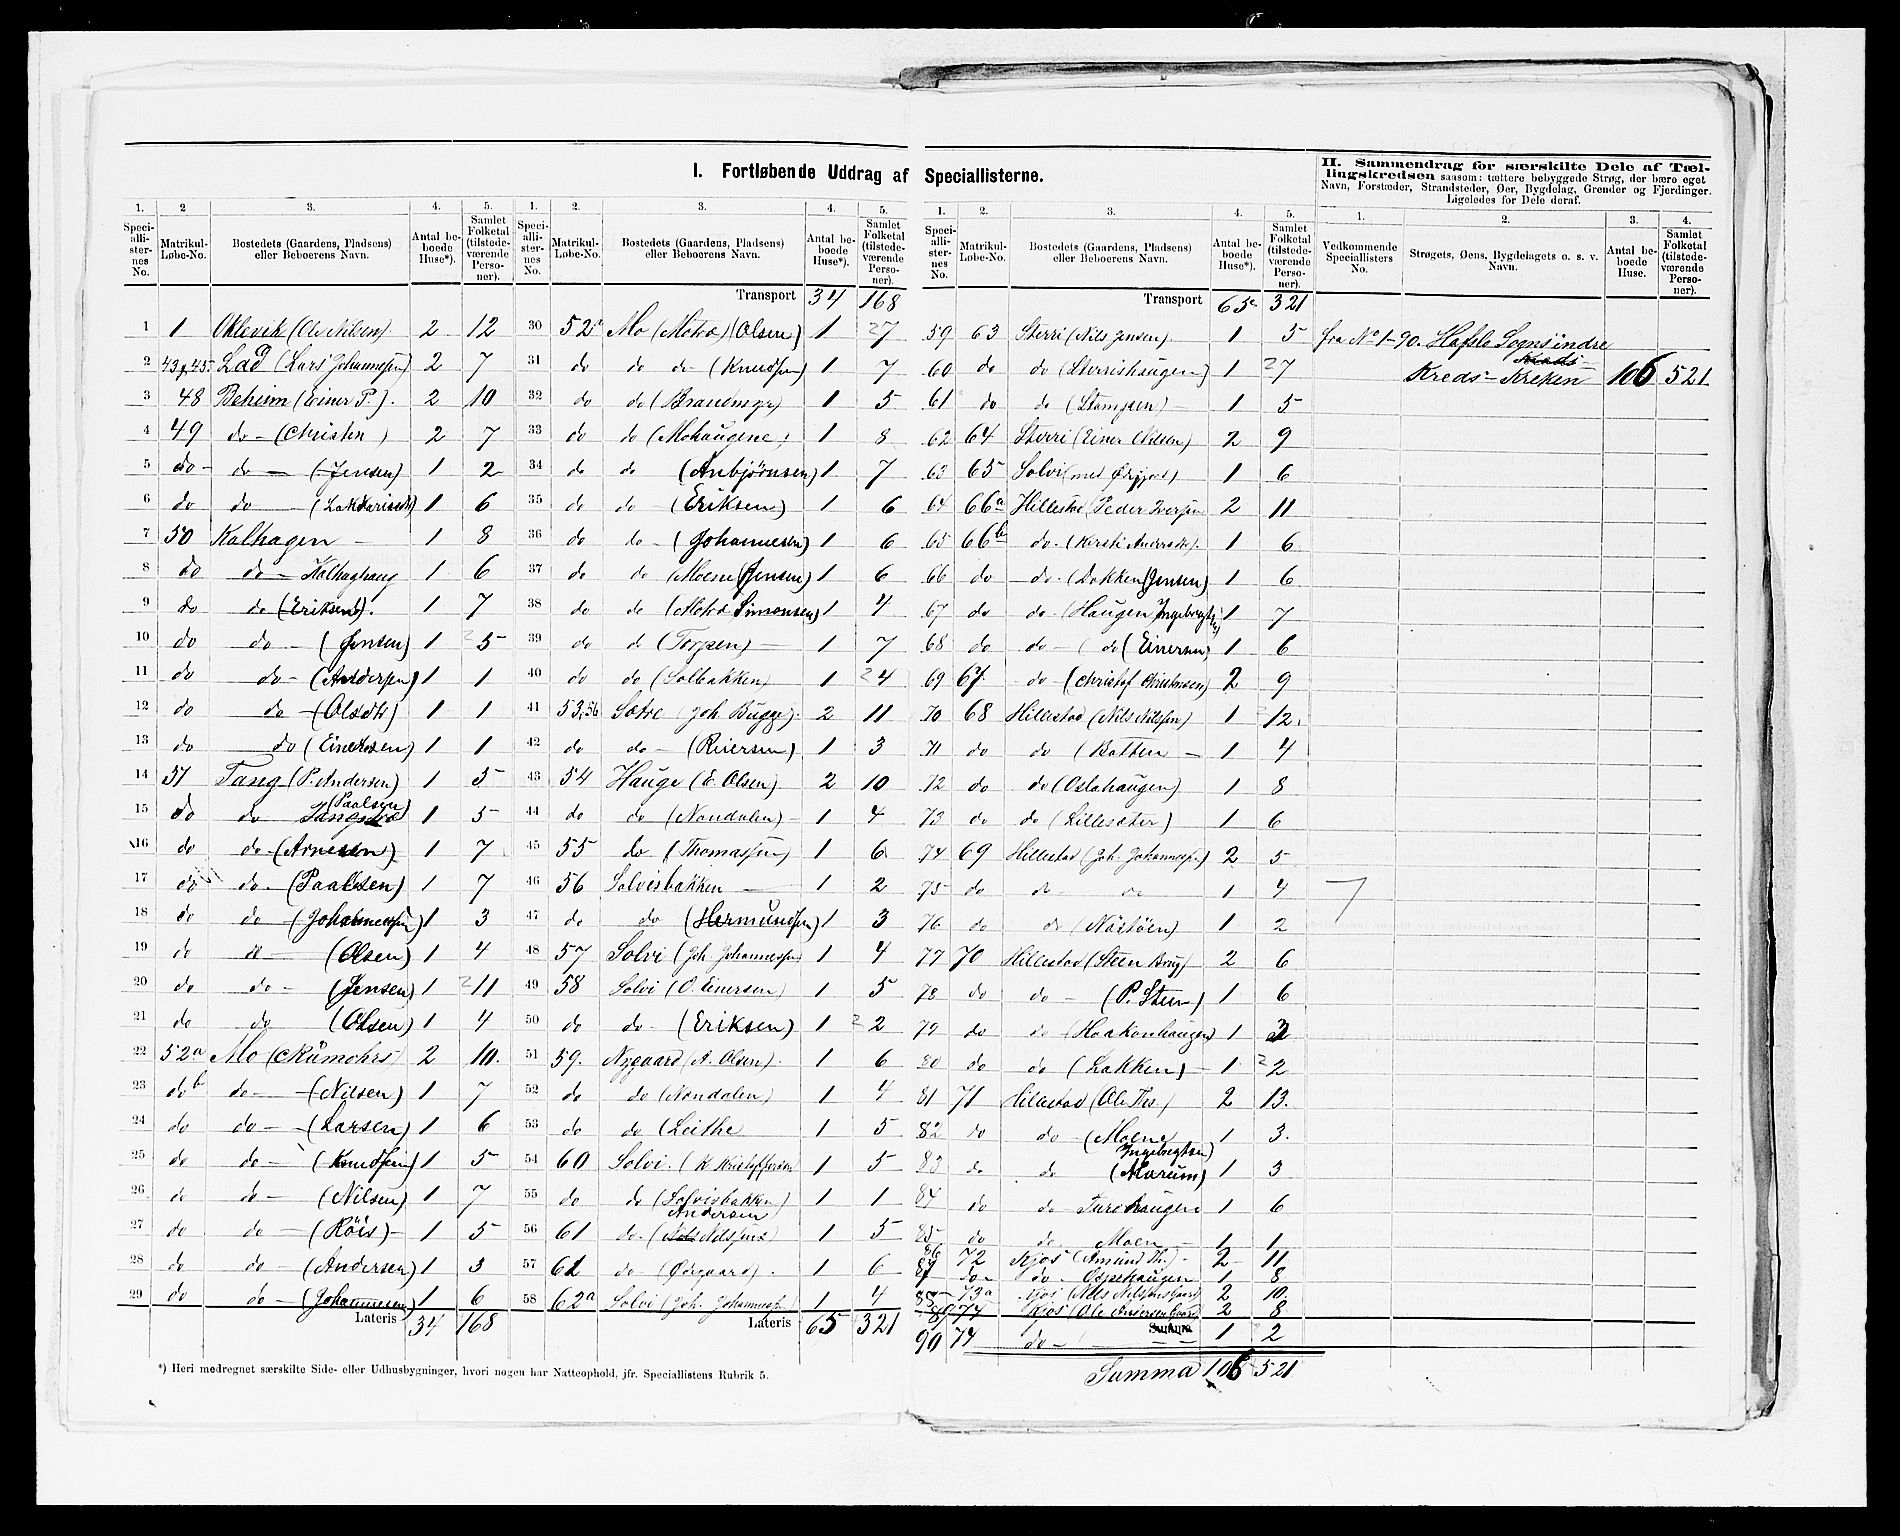 I. Fortløbende Uddrag af Speciallisterne.
II. Sammendrag for særskilte Dele af Tællingskredsen saasom: tættere bebyggede Strøg, der bære eget
Navn, Forstæder, Strandsteder, Øer, Bygdelag, Grender og Fjerdinger.
Ligeledes for Dele deraf.
1. 2 3. 4. 5.
Speciallisternes No. Matrikul-Løbe-No. Bostedets (Gaardens, Pladsens) eller Beboerens Navn. Antal beboede Huse*). Samlet Folketal (tilstedeværende Personer).
1 1 Uklevik (Ole Nilsen) 2 12
2 43,45 Lad (Lars Johannessen) 2 7
3 48 Beheim (Einer P.). 2 10
4 49 do - (Christen) 2 7
5 do - do - (Jensen) 1 2
6 do do 1 6
7 50 Kalhagen - 1 8
8 do do - Kalhaghaug 1 6
9 do do (Eriksen). 1 7
10 do do - (Jensen) 1 5
11 do do - (Andersen) 1 1
12 do do - (Olsdtr) 1 1
13 do do (Einersen) 1 1
14 51 Tang (P. Andersen) 1 5
15 do do (Paalsen) 1 5
16 do do - (Arnesen) 1 7
17 do do - (Paalsen) 1 7
18 do do - (Johannessen) 1 3
19 do do - (Olsen) 1 4
20 do do - (Jensen) 1 11
21 do do (Olsen) 1 4
22 52a Mo (Rumohrs) 2 10.
23 do b do - (Nilsen) 1 7
24 do do - (Larsen) 1 6
25 do do - (Knudsen) 1 5
26 do do - (Nilsen) 1 7
27 do do - (Röis) - 1 5
28 do do - (Andersen) 1 3
29 do do - (Johannesen) 1 6
Lateris 34 168
*) Heri medregnet særskilte Side- eller Udhusbygninger, hvori nogen har Natteophold, jfr. Speciallistens Rubrik 5.
1. 2. 3. 4. 5.
Speciallisternes No. Matrikul-Løbe-No. Bostedets (Gaardens, Pladsens) eller Beboerens Navn. Antal beboede Huse*). Samlet Folketal (tilstedeværende Personer).
Transport 34 168
30 52 Mo (Motræ) (Olsen) 1 7
31 do do do - (Knudsen) 1 7
32 do do 1 5
33 do do (Mohaugene) 1 8
34 do do (Anbjörnsen) 1 7
35 do do - (Eriksen) 1 6
36 do do - (Johannesen) 1 6
37 do do (Moene (Jensen) 1 6
38 do do (Motræ Simonsen) 1 4
39 do do (Torpen) - 1 7
40 do do (Solbakken) 1 4
41 53,56 Sætre (Joh Bugge). 2 11
42 do do - (Riersen) 1 3
43 54 Hauge (E. Olsen) 2 10
44 do do (Nondalen) - 1 4
45 55 do (Thomassen) 1 6
46 56 Solvisbakken - 1 2
47 do do (Hermundsen) 1 3
48 57 Solvi (Joh. Johannessen) 1 4
49 58 Solvi (O. Einersen) 1 5
50 do do - (Eriksen) 1 2
51 59. Nygaard (A. Olsen). 1 6
52 do do (Nondalen) 1 4
53 do do (Leithe 1 5
54 60 Solvi. (K Kristofferson) 1 5
55 do do (Solvisbakken) Andersen 1 1
56 61 do - 1 5
57 61 do - (Ødegaard). 1 6
58 62a Solvi (Joh. Johannessen) 1 4
Lateris 65 321
1. 2. 3. 4. 5.
Speciallisternes No. Matrikul-Løbe-No. Bostedets (Gaardens, Pladsens) eller Beboerens Navn. Antal beboede Huse*). Samlet Folketal (tilstedeværende Personer).
Transport 65 321
59 63 Sterri (Nils Jensen) 1 5
60 do do (Sterrishaugen) 1 7
61 do do (Stampen) - 1 5
62 64 Sterri (Einer Nilsen) 2 9
63 65 Solvi 1 6
64 66a Hillestad (Peder Iversen 2 11
65 66b do. 1 6
66 do do. (Bakken (Jensen) 1 6
67 do do (Haugen Ingebregtsen) 1 7
68 do do - (do (Einersen) 1 6
69 67 do - (Christof Christensen) 2 9
70 68 Hillestad (Nils Nilssen) 1 12.
71 do do (Batten - 1 4
72 do do (Oslahaugen) 1 8
73 do do (Lillesæter) 1 6
74 69 Hillestad (Joh. Johannessen) 2 5
75 do do do 1 4
76. do do (Nöstöen) 1 2
77 70 Hillestad (Steen Brug) 2 6
78 do do - (P. Steen) 1 6
79 do do (Haakonhaugen) 1
80 do do (Bakken) - 1 2
81 71 Hillestad 2 13.
82 do do (Moene Ingebregtsen) 1 3.
83 do do (Marum) 1 3
84 do do Turehaugen 1 6
85 do do Moen - 1 1
86 72 Kjos (Amund Th.) - 2 11
87 do do - Ospehaugen 1 8
88 73a Kjos (Nils Nilssens Gaard) 2 10.
89 74 Kjos (Ole Andersen Gaard) 2 8
90 74 do - 1 2
Summa
Summa 106 521
1. 2. 3. 4.
Vedkommende Speciallisters No. Strøgets, Øens, Bygdelagets o. s. v. Navn. Antal beboede Huse. Samlet Folketal (tilstedeværende Personer).
fra No 1-90. Hafslo Sogns indre
Kreds - Kreken 106 521